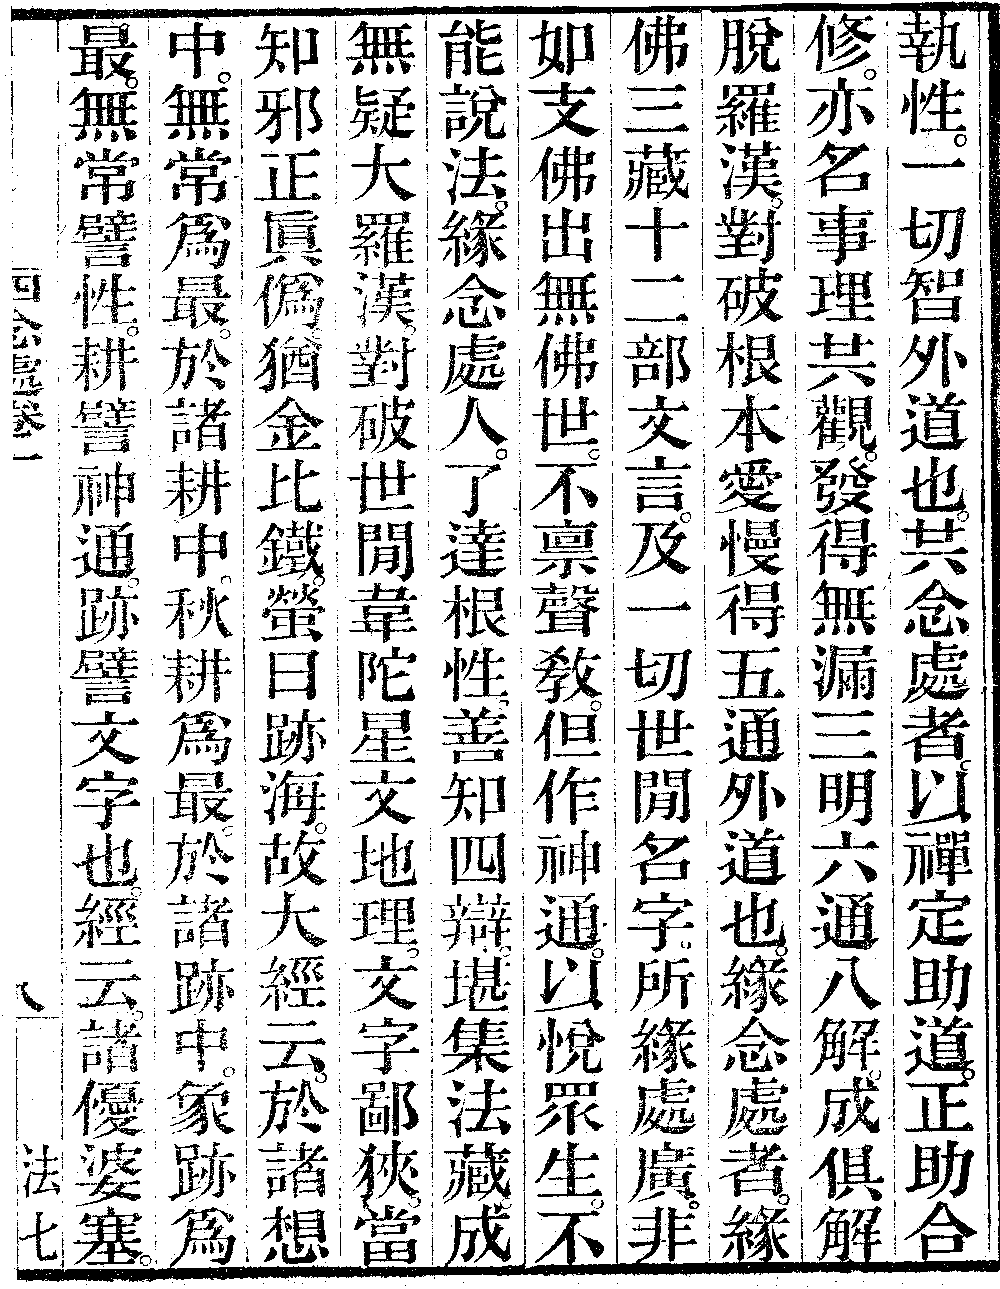 執性。一切智外道也。共念處者。以禪定助道。正助合
修。亦名事理共觀。發得無漏三明六通八解。成俱解
脫羅漢。對破根本愛慢得五通外道也。緣念處者。緣
佛三藏十二部文言。及一切世閒名字。所緣處廣。非
如支佛出無佛世。不禀聲敎。但作神通。以悅眾生。不
能說法。緣念處人。了達根性。善知四辯。堪集法藏。成
無疑大羅漢。對破世閒韋陀星文地理。文字鄙狹。當
知邪正眞僞猶金比鐵。螢日跡海。故大經云。於諸想
中。無常爲最。於諸耕中。秋耕爲最。於諸跡中。象跡爲
最。無常譬性。耕譬神通。跡譬文字也。經云。諸優婆塞。
四念處卷一 八 法七